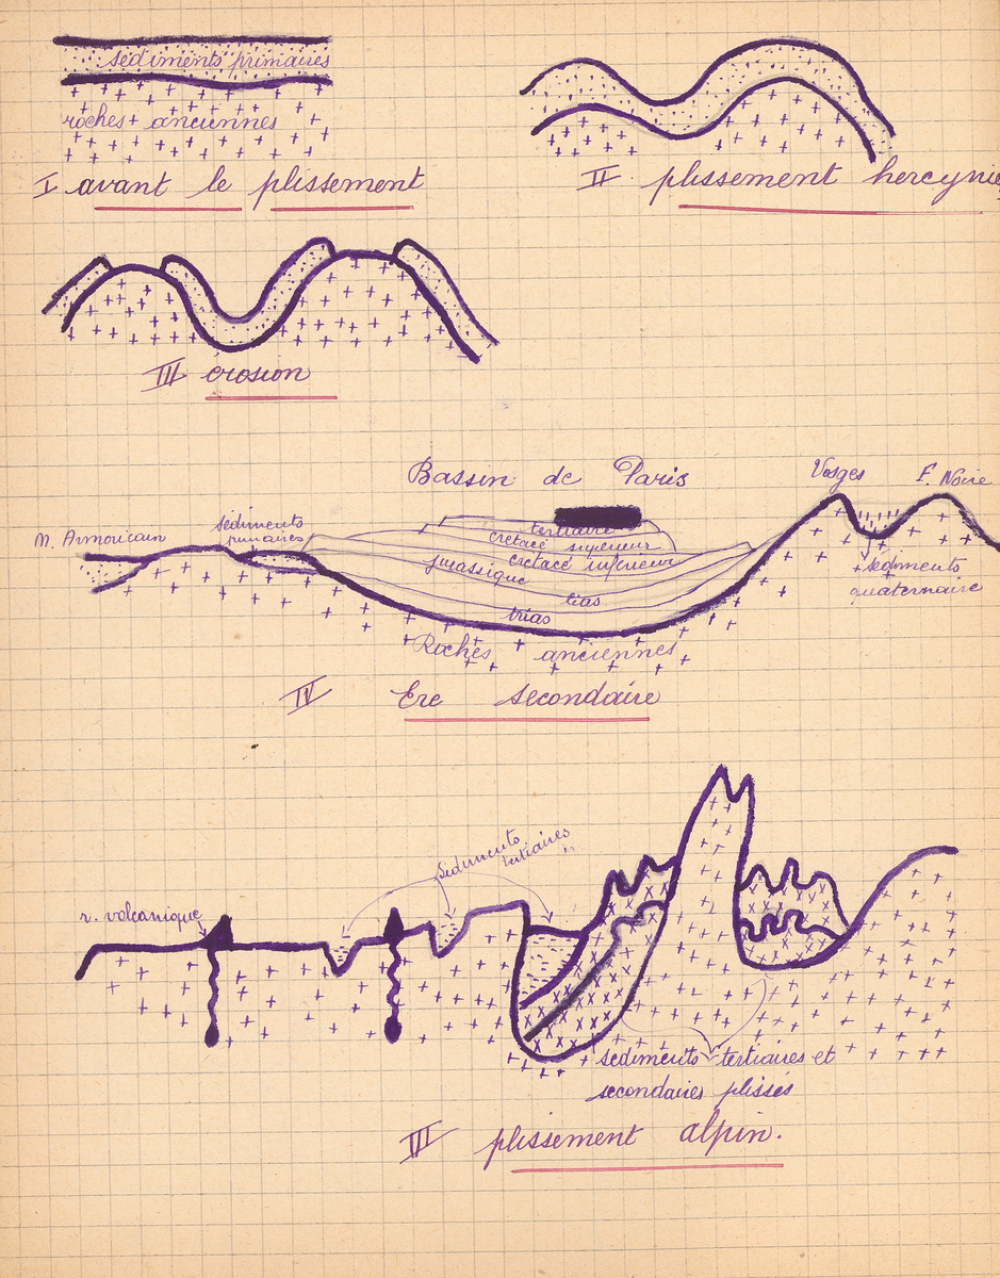 sédiments primaires
roches anciennes
I avant le plissement
II plissement hercynie
III érosion
Bassin de Paris
Vosges
F. Noire
M. Armoricain
sédiments
primaires
tertiaire
crétacé supérieur
crétacé inférieur
jurassique
lias
trias
Roches anciennes
sédiments
quaternaire
IV Ere secondaire
Sédiments
tertiaires
r. volcanique
sédiments tertiaires et
secondaires plissés
III plissement alpin.